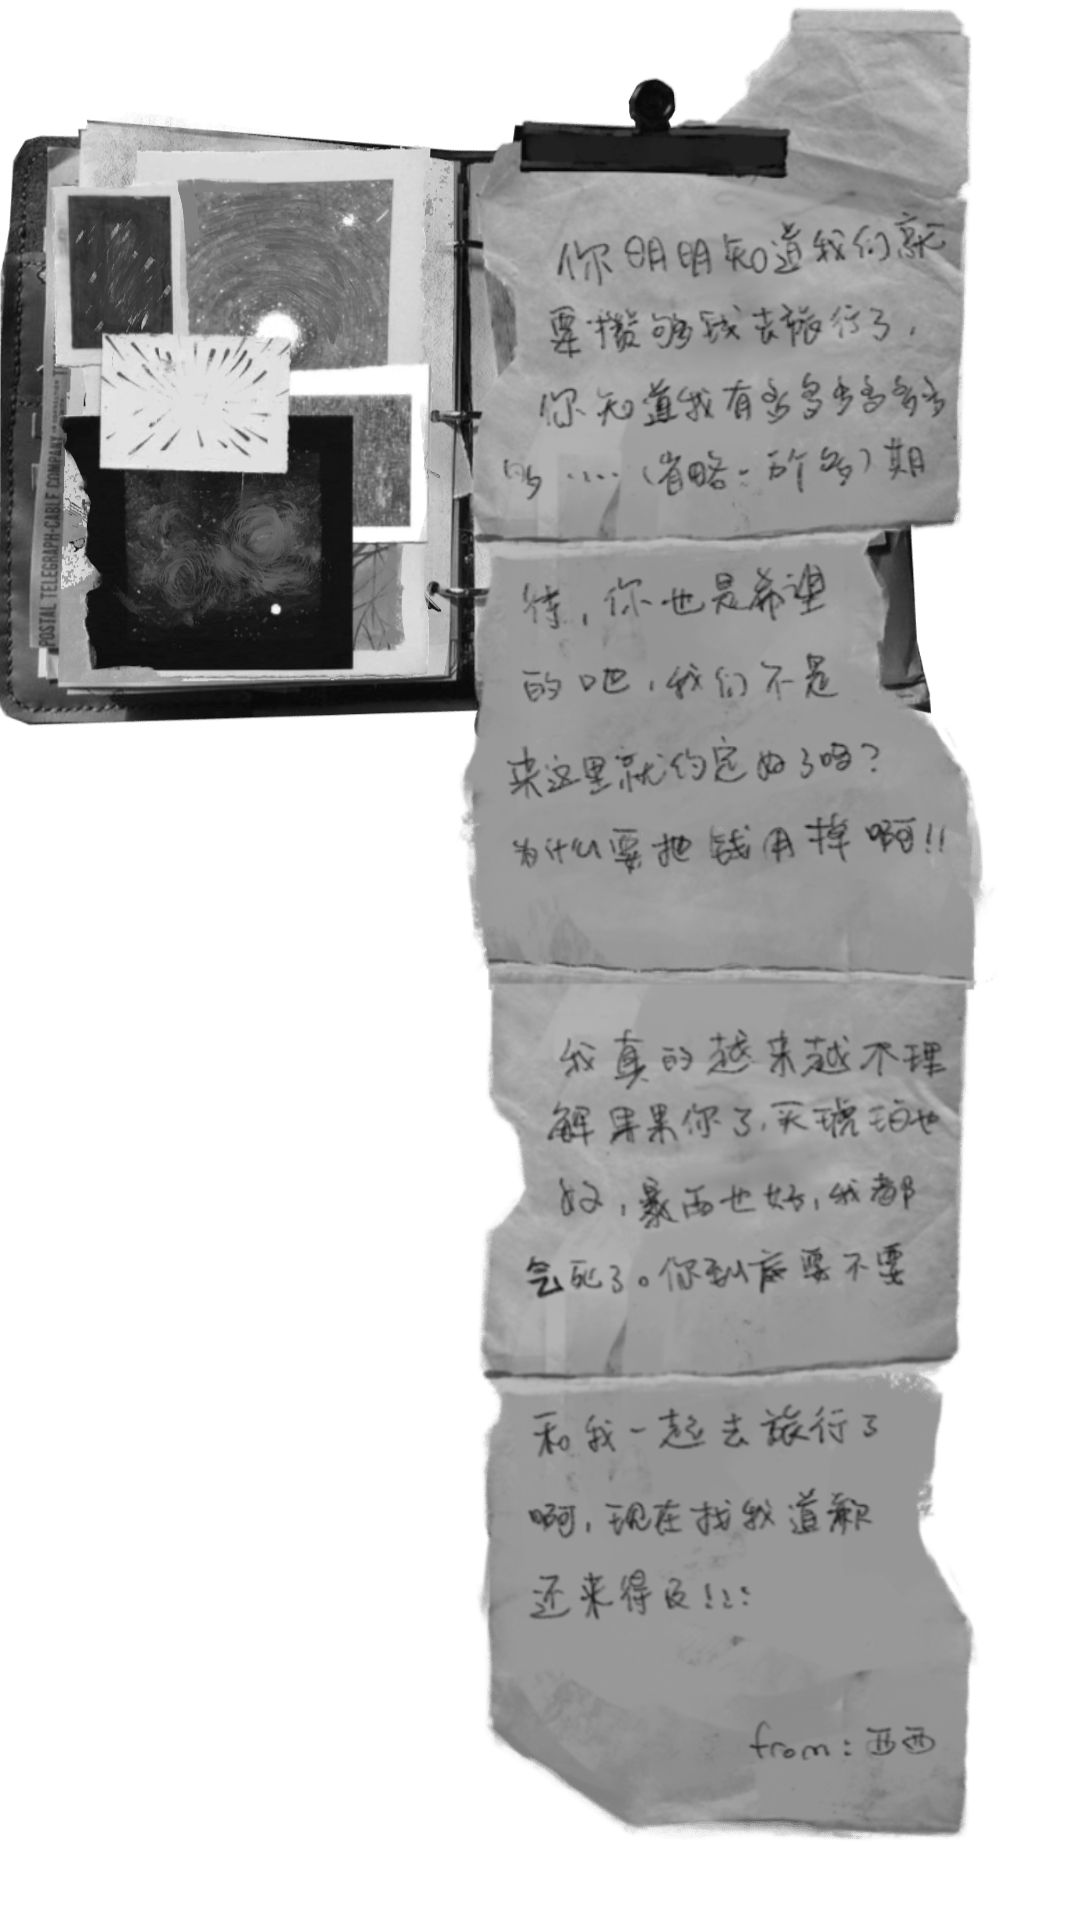 POSTAL TELEGRAPH-CABLE COMPANY
你明明知道我们就
要攒够钱去旅行了，
你知道我有多多多多多多
多……（省略一万个多）期
待，你也是希望
的吧，我们不是
来这里就约定好了吗？
为什么要把钱用掉啊！！
我真的越来越不理
解果果你了，买琥珀也
好，暴雨也好，我都
气死了。你到底要不要
和我一起去旅行了
啊，现在找我道歉
还来得及！！！
from：西西